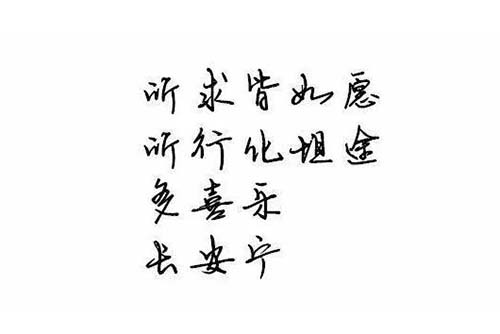 所求皆如愿
所行化坦途
多喜乐
长安宁